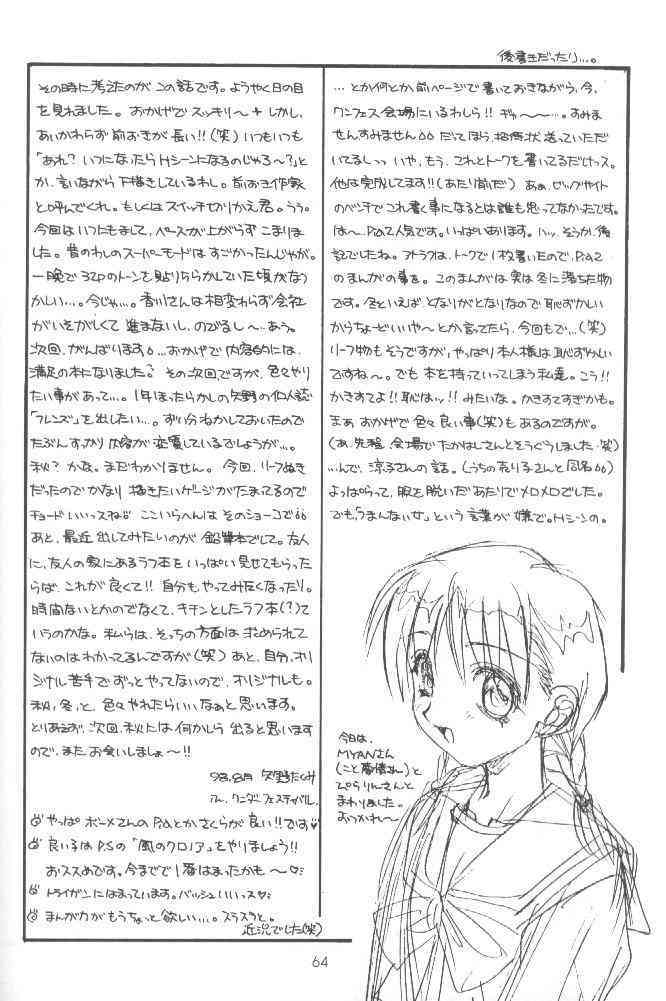 後書きだったり…。
… とか何とか、前ページで書いておきながら、今、
ワンフェス会場にいるわしら!! ギャ〜〜…。すみま
せん、すみません。だってほら、招待状送っていただ
いてるしっっ いや、もう、これとトークを書いてるだけっス。
他は完成してます!!(あたり前だ) あぁ、ビッグサイト
のベンチでこれ書く事になるとは誰も思ってなかったです。
は〜、P.A.2人気です。いっぱいあります。ハッ、そうか、後
記でしたね。アトラフは、トークで1枚書いたので、P.A.2
のまんがの事を。このまんがは実は冬に落ちた物
です。冬といえばとなりがとなりなので恥ずかしい
からちょーどいいや〜とか言ってたら、今回もで…(笑)
リーフ物もそうですが、やっぱり本人様は恥ずかしい
ですね〜。でも本を持っていってしまう私達。こう!!
かきすてよ!! 恥はッ!! みたいな。かきすてすぎかも。
まぁ、おかげで色々良い事(笑)もあるのですが。
(あ、先程、会場でたかはしさんとそうぐうしました、笑)
…んで、涼子さんの話。(うちの売り子さんと同名)
よっぱらって、服を脱いだあたりでメロメロでした。
でも、「つまんない女」という言葉が嫌で。Hシーンの。
その時に考えたのがこの話です。ようやく日の目
を見れました。おかげでスッキリ〜+ しかし、
あいかわらず前おきが長い!!(笑) いつもいつも
「あれ? いつになったらHシーンになるのじゃろ〜?」と
か、言いながら下描きしているわし。前おき作家
と呼んでくれ。もしくはスイッチせりかえ君。うぅ。
今回はいつにもまして、ペースが上がらずこまりま
した。昔のわしのスーパーモードはすごかったんじゃが。
一晩で32Pのトーンを貼りちらかしていた頃がなつ
かしい…。今じゃ…。香川さんは相変わらず会社
がいそがしくて進まないし、のびるし〜、あぅ。
次回、がんばります。…おかげで内容的には、
満足の本になりました? その次回ですが、色々やり
たい事があって…。1年ほったらかしの矢野の個人誌
「フレンズ」を出したい…。ずい分ねかしておいたので
たぶんすっかり内容が変質しているでしょうが…。
秋? かな。まだわかりません。今回、リーフぬき
だったのでかなり描きたいゲージがたまってるので
チョードいいっスね。ここいらへんはそのショーコで
あと、最近出してみたいのが鉛筆本でして。友人
に、友人の家にあるラフ本をいっぱい見せてもらった
らば、これが良くて!! 自分もやってみたくなったり。
時間ないとかのでなくて、キチンとしたラフ本(?)て
いうのかな。私らは、そっちの方面は求められて
ないのはわかってるんですが(笑) あと、自分、オリ
ジナル苦手でずっとやってないので、オリジナルも。
秋、冬、と、色々やれたらいいなぁと思います。
とりあえず、次回、秋には何かしら出ると思います
ので、またお会いしましょ〜!!
98.8月 矢野たくみ
アー、ワンダーフェスティバル。
やっぱボーメさんのP.Aとかさくらが良い!!です♡
良い子はP.Sの「風のクロノア」をやりましょう!!
おススめです。今までで1番はまったかも〜♡
トライガンにはまっています。バッシュいいっス♡
まんが力がもうちょっと欲しい…。スラスラと。
近況でした(笑)
今日は、
MYANさん
(こと夢情さん)と
ぴらりんさんと
まわりました。
おつかれ〜
64